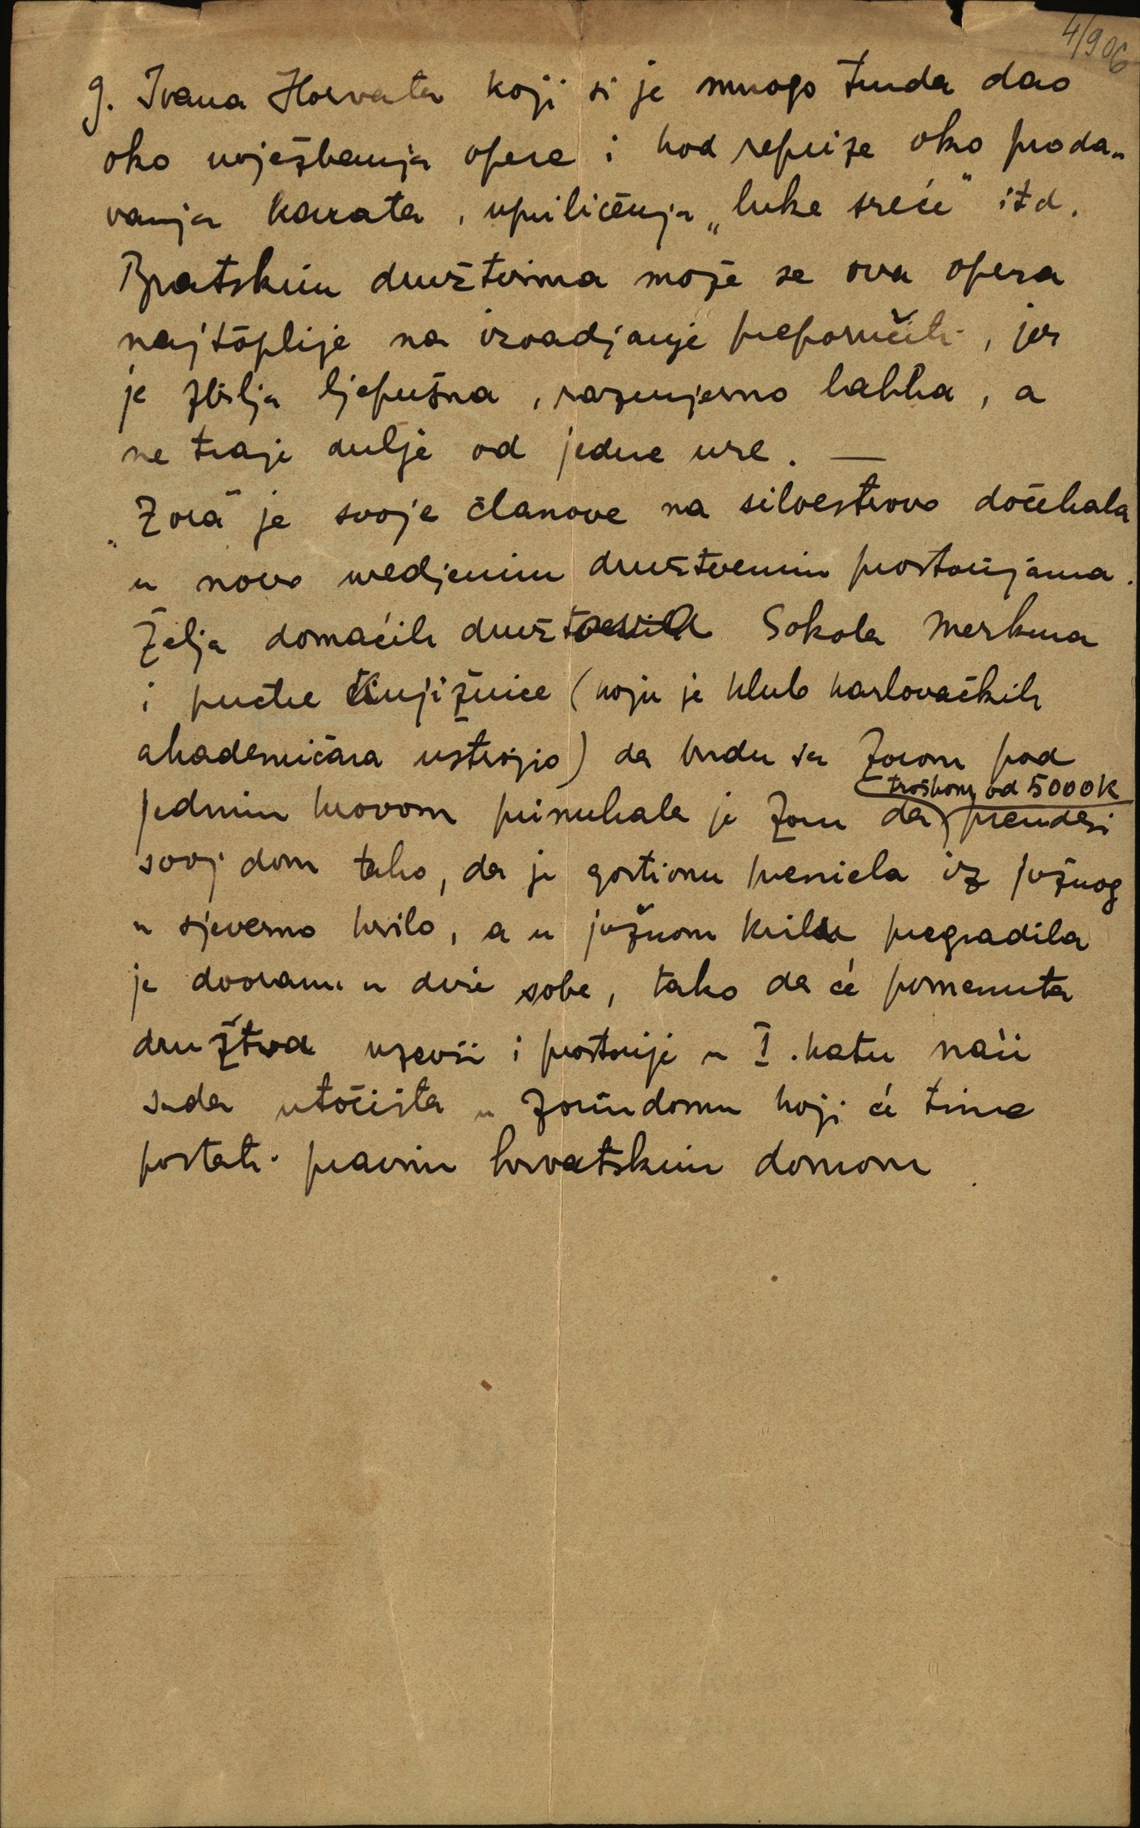 4/906
g. Ivana Horvata koji si je mnogo truda dao
oko uvježbanja opere i kod reprize oko proda-
vanja karata, upriličenja „luke sreće" itd.
Bratskim družtvima može se ova opera
najtoplije na izvadjanje preporučiti, jer
je zbilja ljepušna, razmjerno lahka, a
ne traje dulje od jedne ure. —
„Zora" je svoje članove na silvestrovo dočekala
u novo uredjenim družtvenim prostorijama.
Želja domaćih družt Sokola Merkura
i pučke knjižnice (koju je klub karlovačkih
akademičara ustrojio) da budu sa Zorom pod
troškom od 5000 K
jednim krovom prinukala je Zoru da preudesi
svoj dom tako, da je gostionu preniela iz južnog
u sjeverno krilo, a u južnom krilu pregradila
je dvoranu u dvie sobe, tako da će pomenuta
družtva uzevši i prostorije u I. katu naći
sada utočišta u Zorin domu koji će time
postati pravim hrvatskim domom.